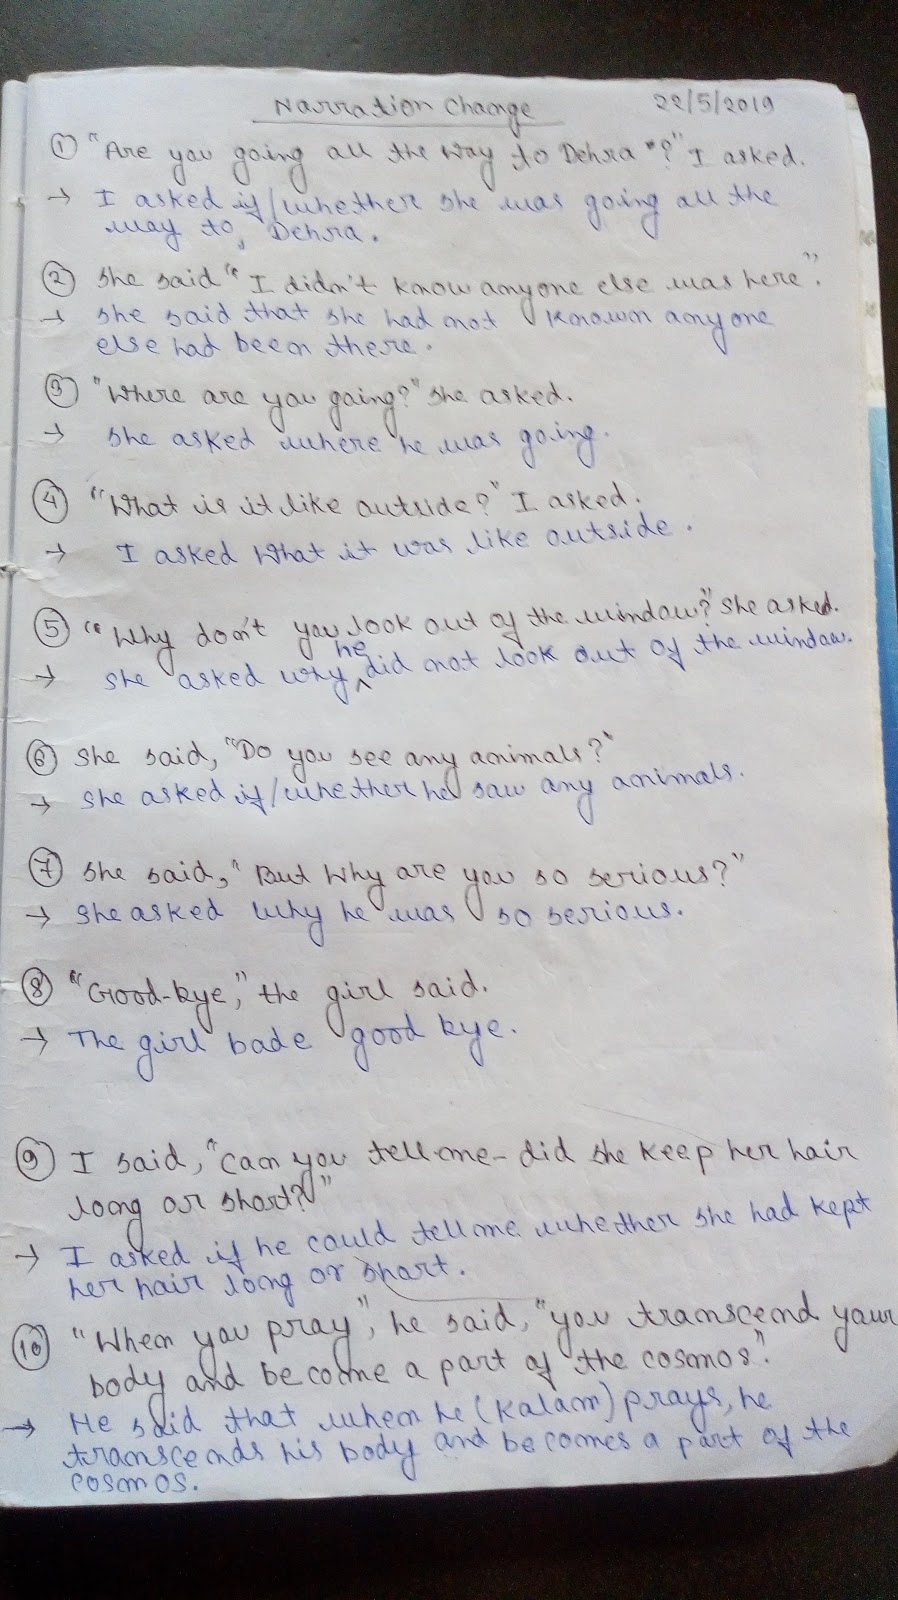 Narration Change 22/5/2019
① "Are you going all the way to Dehra"?" I asked.
→ I asked if/whether she was going all the
way to, Dehra.
② She said "I didn't know anyone else was here".
→ She said that she had not known anyone
else had been there.
③ "Where are you going?" She asked.
→ She asked where he was going.
④ "What is it like outside?" I asked.
→ I asked What it was like outside.
⑤ "Why don't you look out of the window?" She asked.
→ She asked why he did not look out of the window.
⑥ She said, "Do you see any animals?"
→ She asked if/whether he saw any animals.
⑦ She said, "But Why are you so serious?"
→ She asked why he was so serious.
⑧ "Good-bye," the girl said.
→ The girl bade good bye.
⑨ I said, "Can you tell me- did she keep her hair
long or short?"
→ I asked if he could tell me whether she had kept
her hair long or short.
⑩ "When you pray", he said, "you transcend your
body and become a part of the cosmos".
→ He said that when he (Kalam) prays, he
transcends his body and becomes a part of the
cosmos.